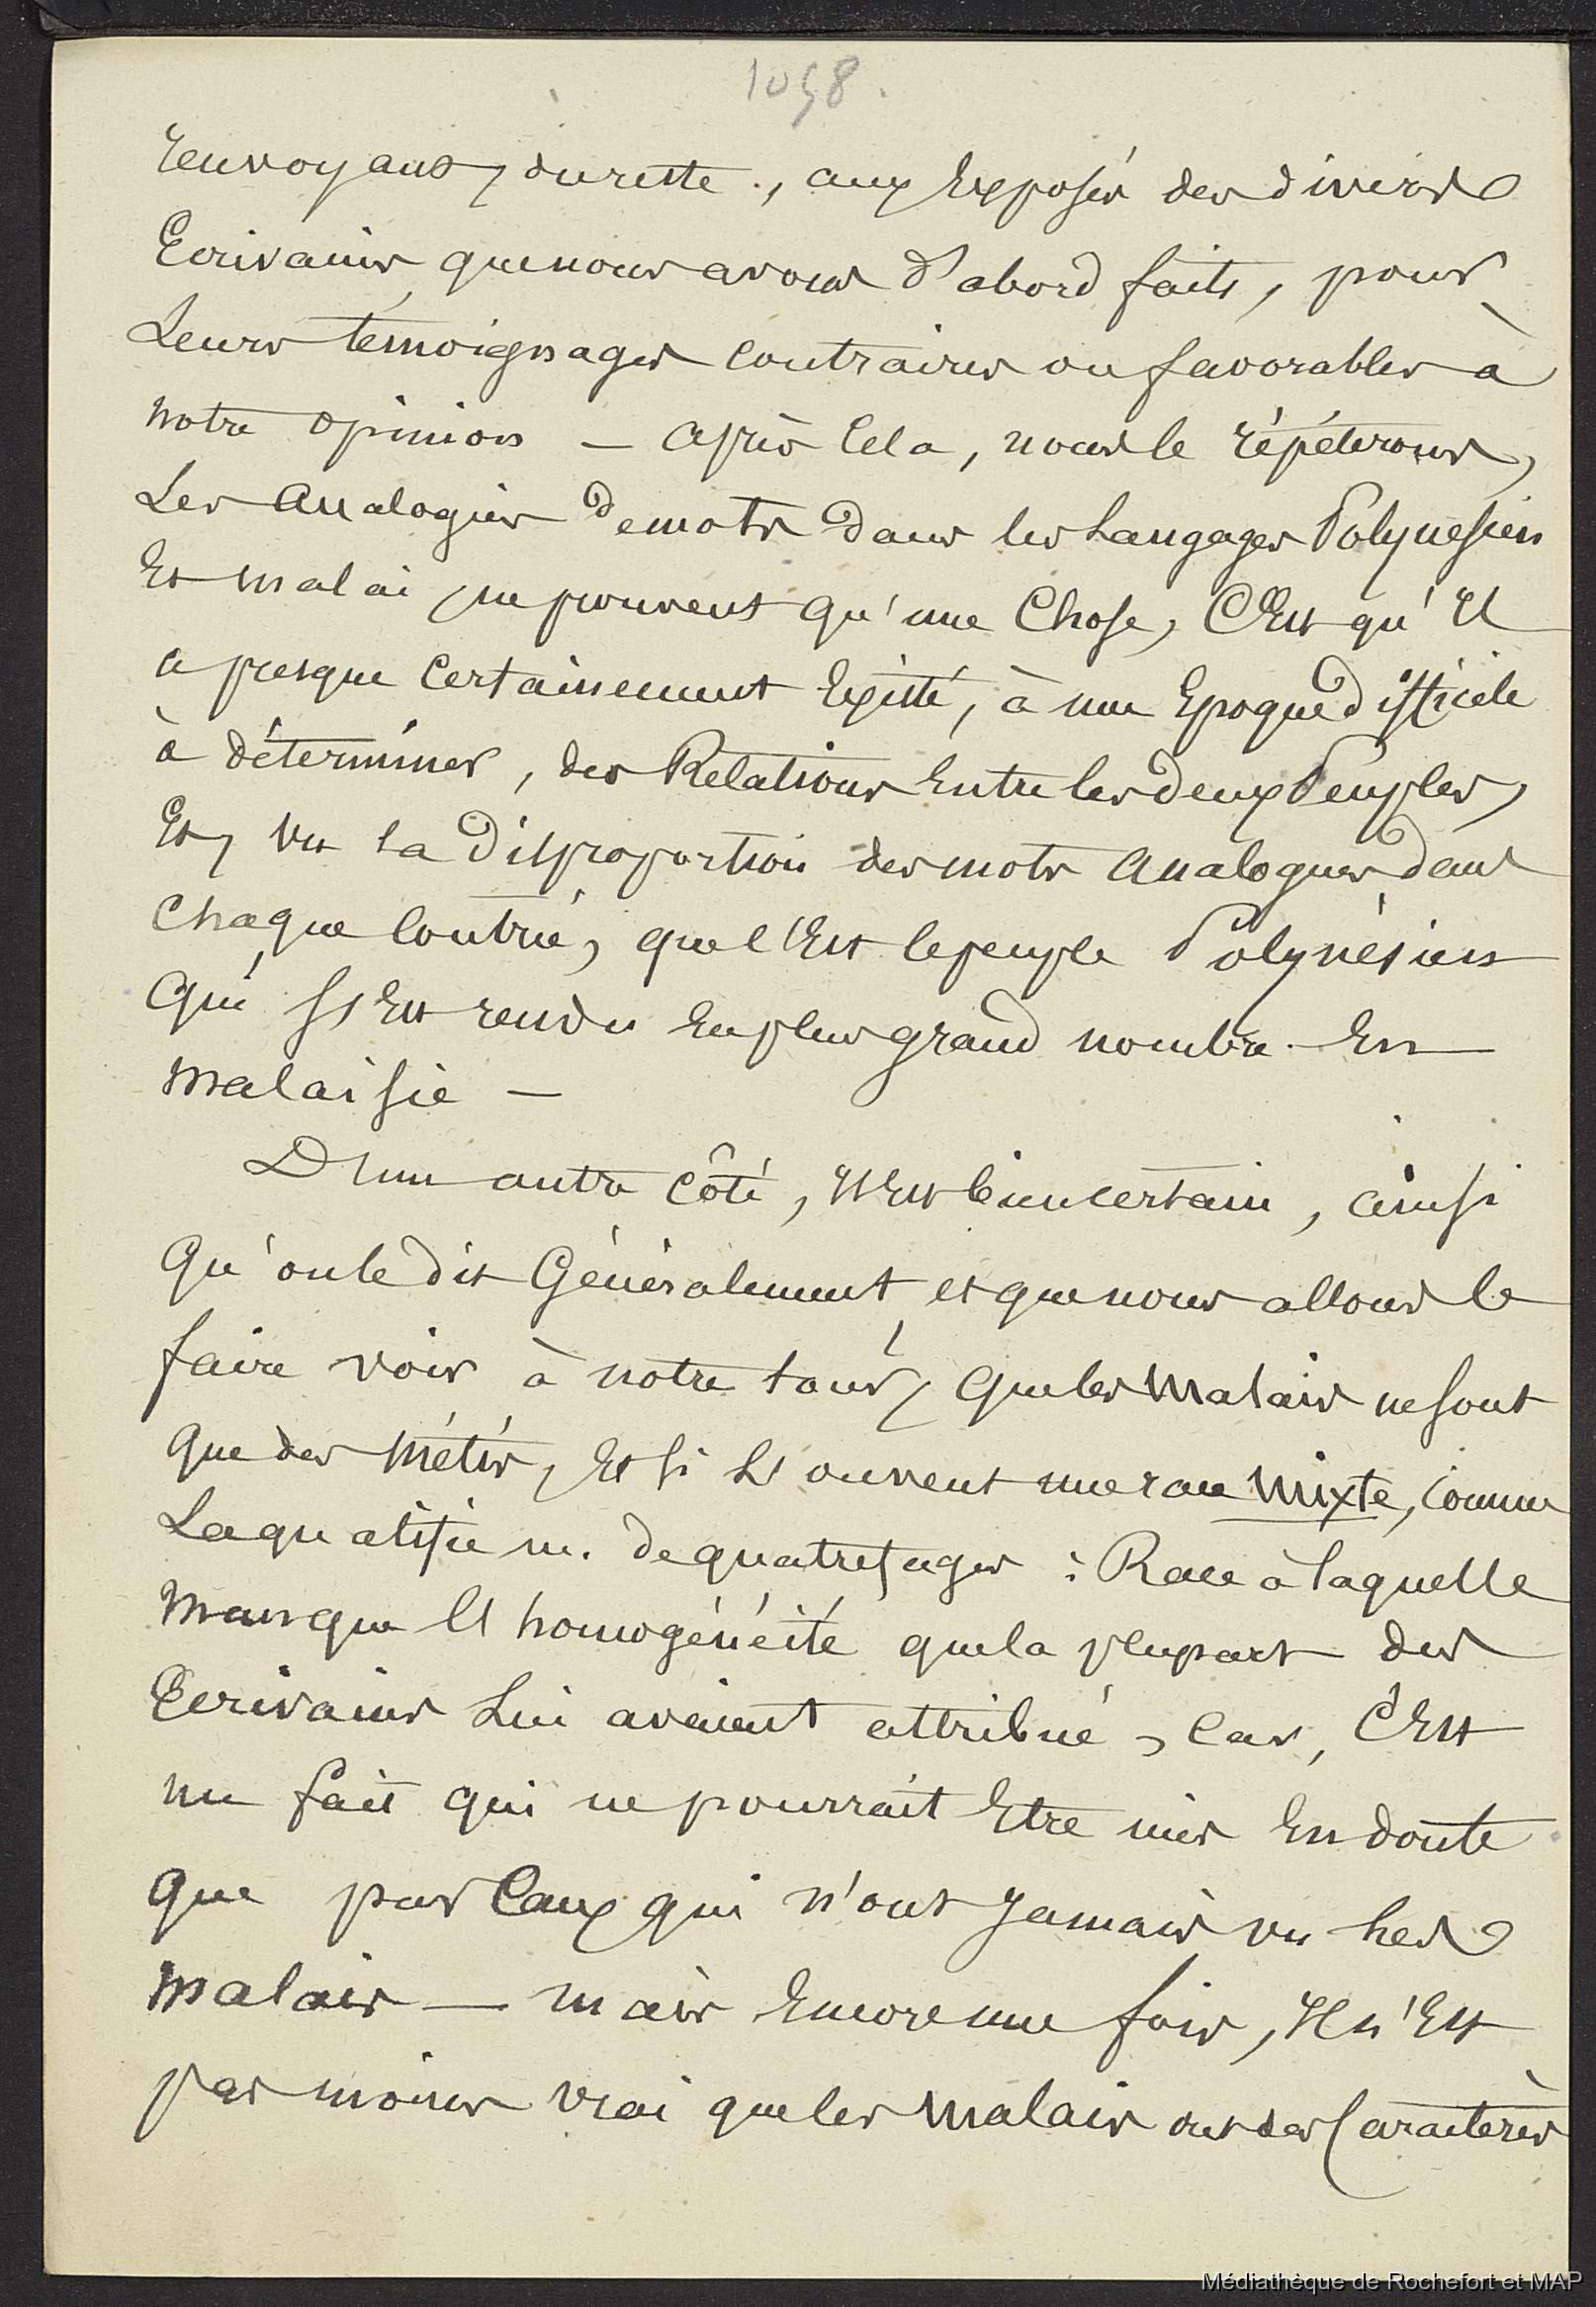 1058.
renvoyant, du reste, aux Exposés des divers
Ecrivains, que nous avons d'abord faits, pour
Leurs témoignages contraires ou favorables à
notre opinion — après Cela, nous le répéterons,
Les Analogies de mots dans les Langages Polynésien
Et malai, ne prouvent qu'une Chose, C'Est qu'Il
a presque Certainement Existé, à une Epoque difficile
à déterminer, des Relations Entre les deux Peuples,
Et, vu la Disproportion des mots Analogues, dans
Chaque Contrée, que c'Est le peuple Polynésien
Qui s'Est rendu En plus grand nombre En
Malaisie —
D'un autre Côté, Il Est bien certain, ainsi
Qu'on le dit Généralement, et que nous allons le
faire voir à notre tour, Que les Malais ne sont
Que des Métis, Et si souvent une race Mixte, Comme
La qualifie m. de quatrefages : Race à laquelle
Manque l'homogénéité que la plupart des
Ecrivains Lui avaient attribué, Car, C'Est
un fait qui ne pourrait Etre mis En doute
Que par Ceux qui n'ont Jamais vu Les
Malais — mais Encore une fois, Il n'Est
pas moins vrai que les Malais ont des Caractères
Médiathèque de Rochefort et MAP